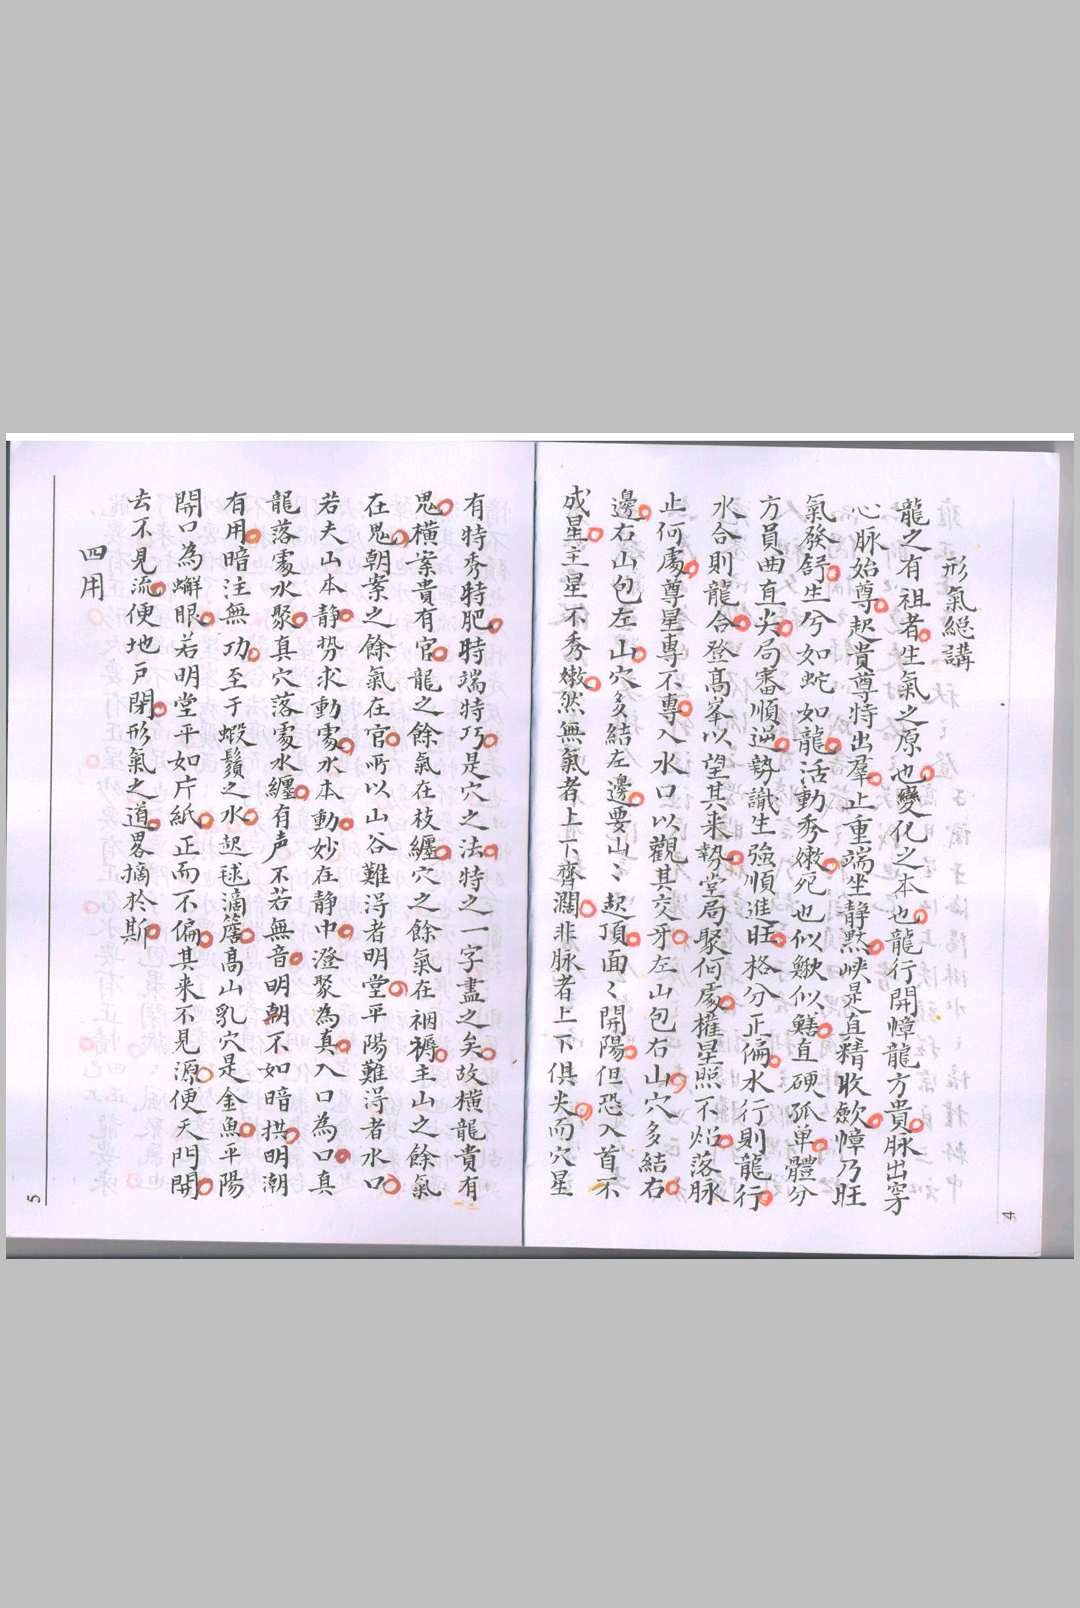 形氣總講
龍之有祖者生氣之原也變化之本也龍行開幛龍方貴脉出穿
心脉始尊起貴尊特出羣止重端坐静黙峡是真精收歛幛乃旺
氣發舒生兮如蛇如龍活動秀嫩宛也似鰍似鱔直硬孤单體分
方員曲直尖局審順逆勢識生強順進旺格分正偏水行則龍行
水合則龍合登高峯以望其来勢堂局聚何處權星照不炤落脉
止何處尊星專不專入水口以觀其交牙左山包右山穴多結右
邊右山包左山穴多結左邊要山〻起頂面〻開陽但恐入首不
成星主星不秀嫩然無氣者上下齊濶非脉者上下俱尖而穴星
有特秀特肥特端特巧是穴之法特之一字盡之矣故橫龍貴有
鬼橫案貴有官龍之餘氣在枝纏穴之餘氣在裀褥主山之餘氣
在鬼朝案之餘氣在官所以山谷難淂者明堂平陽難淂者水口
若夫山本静势求動處水本動妙在静中澄聚為真入口為口真
龍落處水聚真穴落處水纏有声不若無音明朝不如暗拱明潮
有用暗注無功至于蝦鬚之水起毬滴簷高山乳穴是金魚平陽
開口為蠏眼若明堂平如片紙正而不偏其来不見源便天門開
去不見流便地户閉形氣之道畧摘於斯
四用
4
5